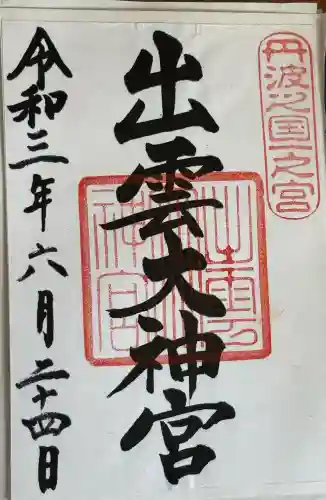 丹波之国一之宮
出雲大神宮
出雲神宮
令和三年六月二十四日